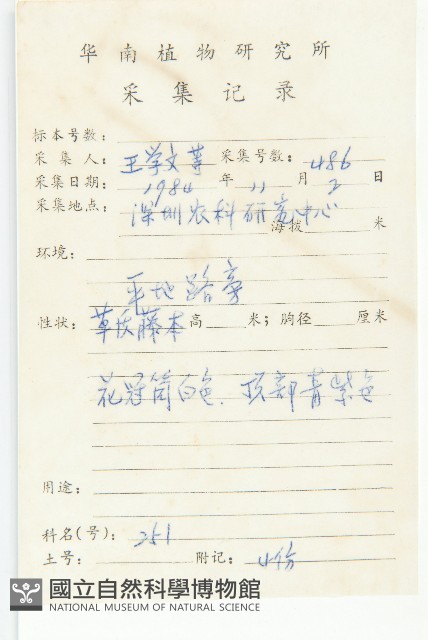 华南植物研究所
采集记录
标本号数：
采集人：王学文等 采集号数：486
采集日期：1984 年 11 月 2 日
采集地点：深圳农科研究中心
海拔 米
环境：
平地路旁
性状：草质藤本 高 米；胸径 厘米
花冠筒白色，顶部青紫色
用途：
科名(号)：251
土号： 附记：4份
國立自然科學博物館
NATIONAL MUSEUM OF NATURAL SCIENCE